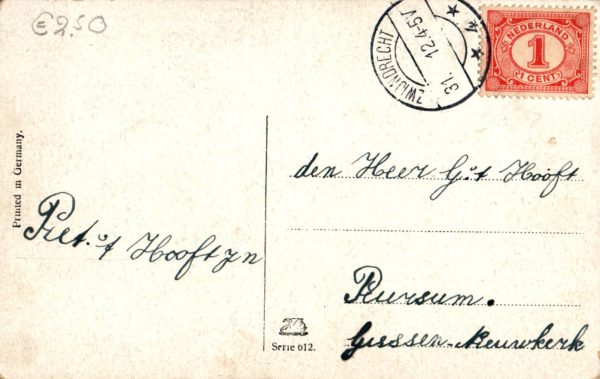 €2.50
ZWIJNDRECHT
31. 12.4-5V
4
NEDERLAND
1
1 CENT
Printed in Germany.
den Heer G. 't Hooft
Piet. 't Hooft Jn
Pursum.
Giessen-Nieuwkerk
Serie 612.